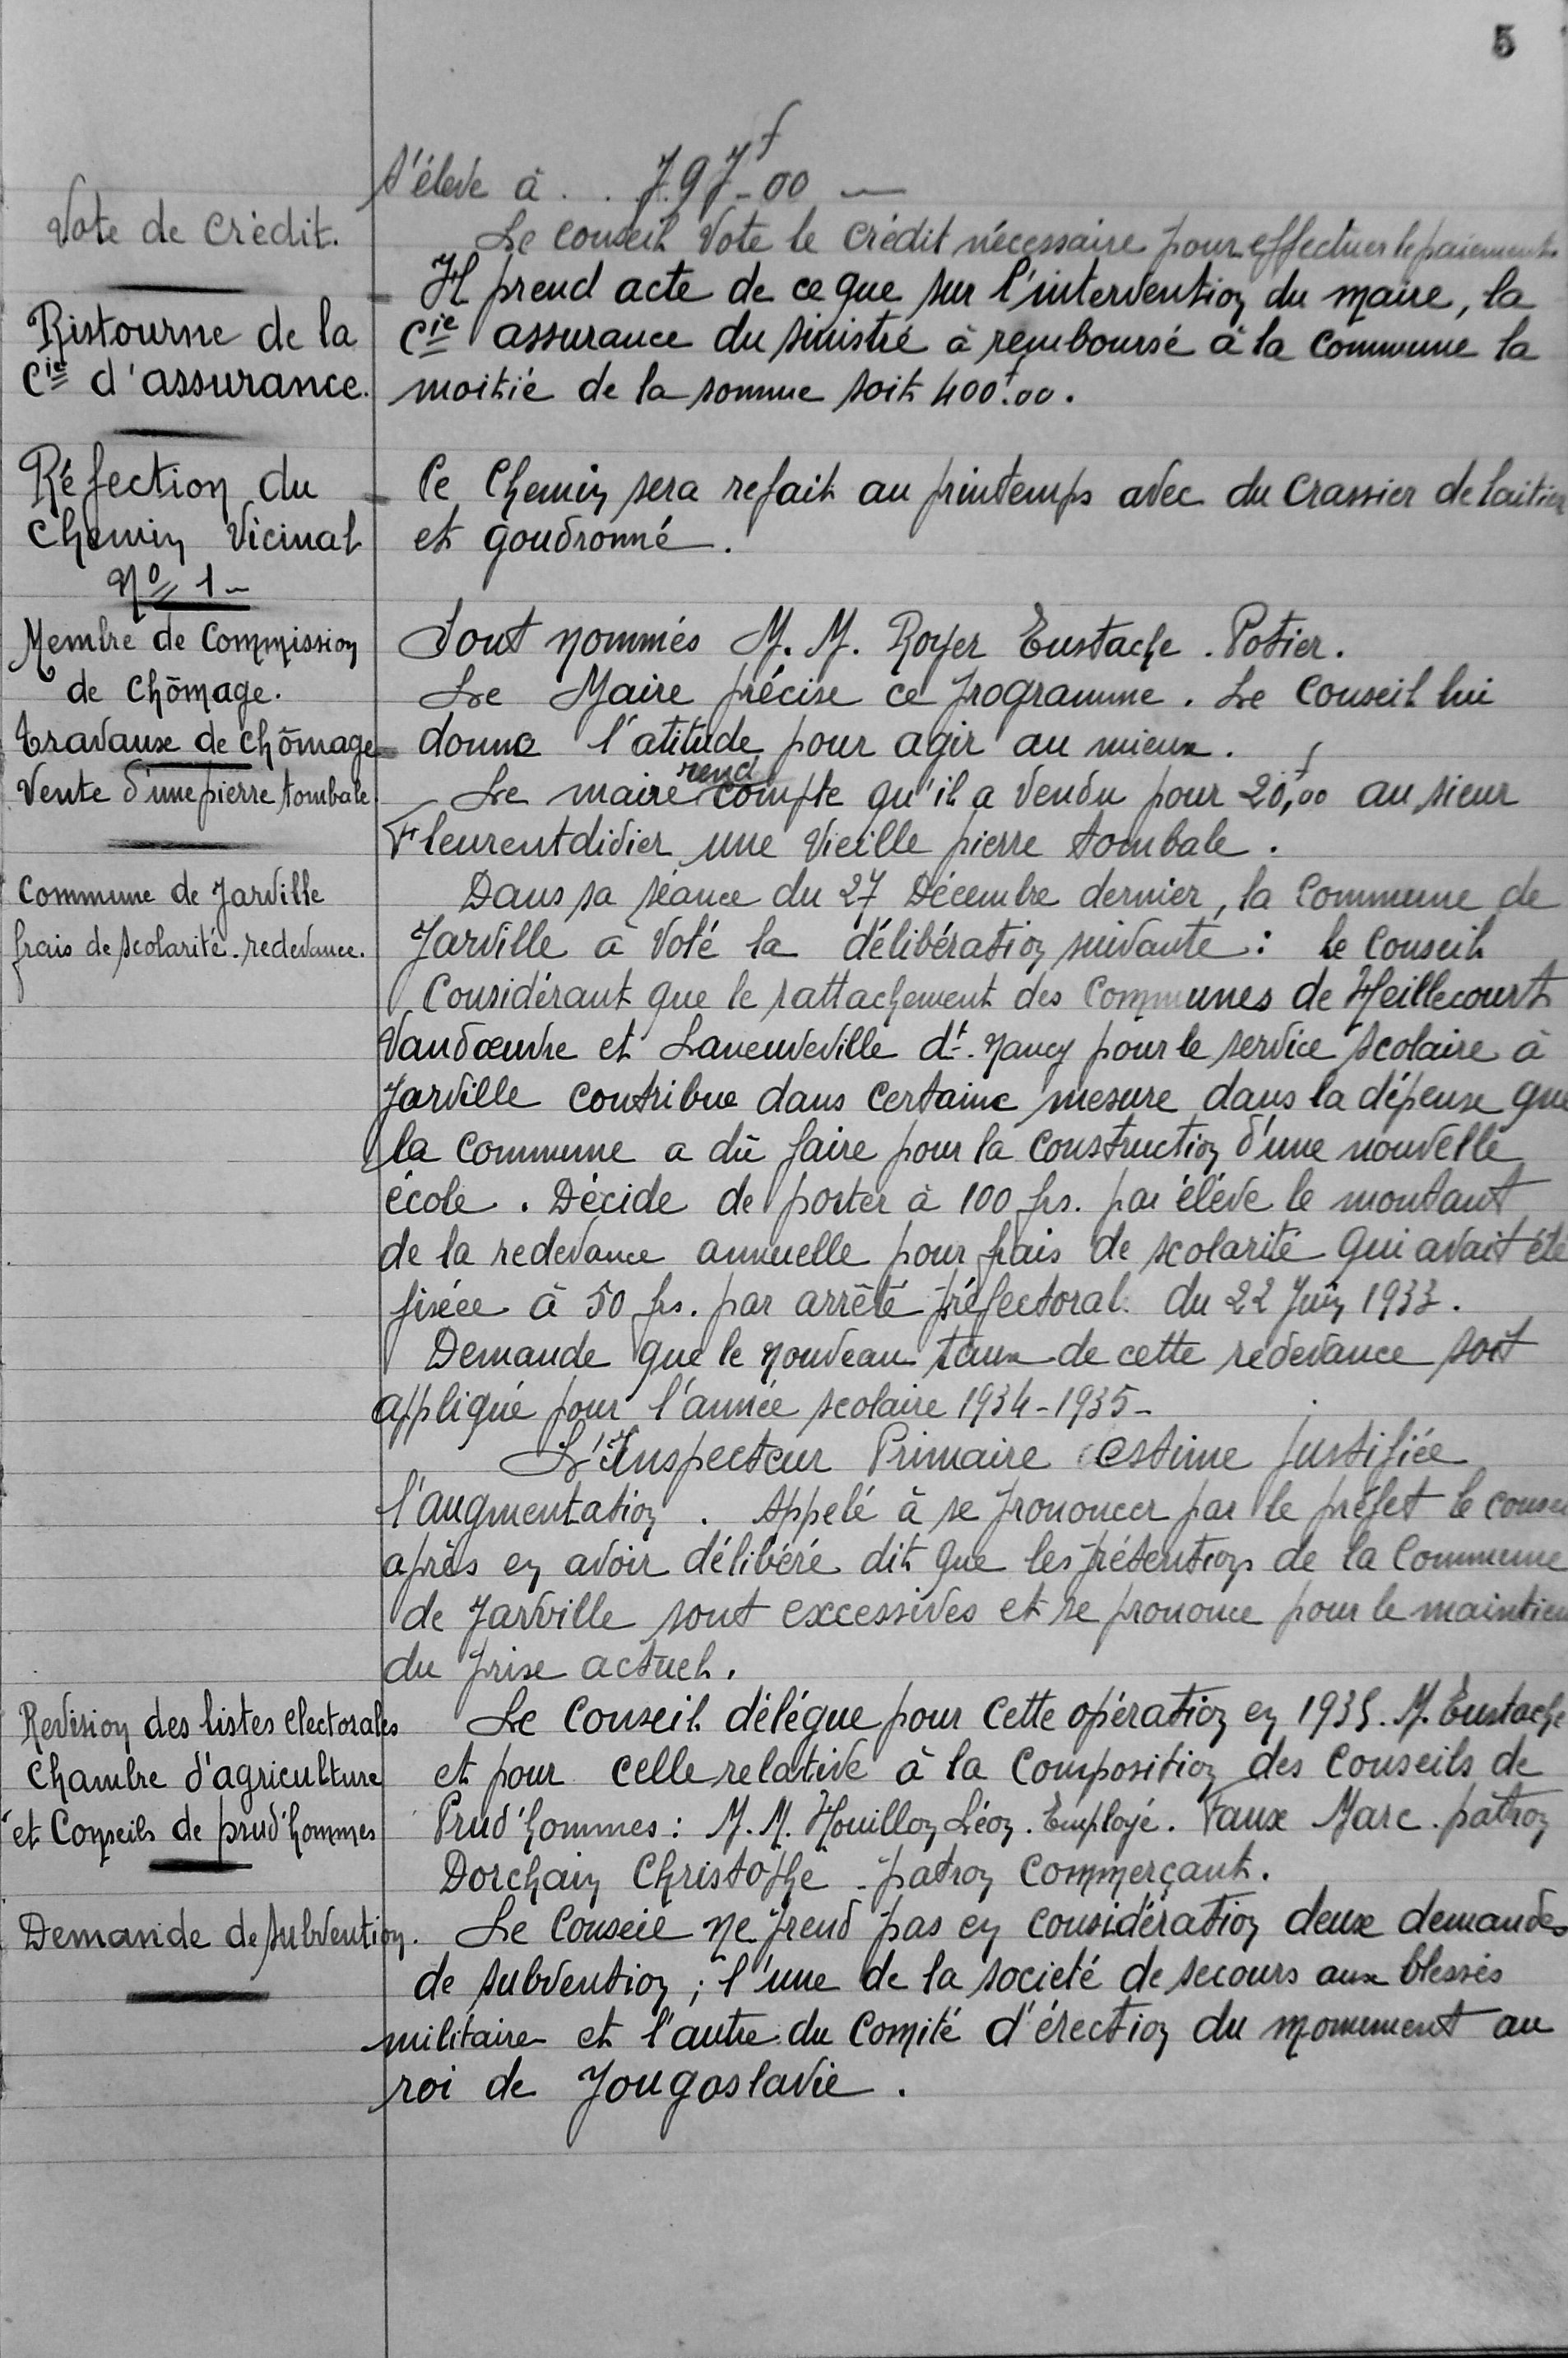 5
s'éleve à . . 797f-00 —
Vote de Crédit.
Le conseil Vote le Crédit nécessaire pour effectuer le paiement
Il prend acte de ce que sur l'intervention du maire, la
Ristourne de la
Cie d'assurance.
Cie assurance du sinistré à remboursé à la Commune la
moitié de la somme soit 400f.00.
Réfection du
Chemin Vicinal
No 1 -
Ce Chemin sera refait au printemps avec du Crassier de laitier
et goudronné.
Membre de Commission
de Chômage.
Sont nommés M. M. Royer Eustache. Potier.
Le Maire précise ce programme. Le Conseil lui
Travaux de chômage
donne l'atitude pour agir au mieux.
Vente d'une pierre tombale
Le maire rend compte qu'il a vendu pour 20f,00 au sieur
Fleurentdidier une Vieille pierre tombale.
Commune de Jarville
frais de scolarité. redevance.
Dans sa séance du 27 Décembre dernier, la Commune de
Jarville à Voté la délibération suivante : le Conseil
Considérant que le rattachement des Communes de Heillecourt
Vandœuvre et Laneuveville dt. Nancy pour le service scolaire à
Jarville contribue dans certaine mesure dans la dépense que
la Commune a dû faire pour la construction d'une nouvelle
école. Décide de porter à 100 frs. par élève le montant
de la redevance annuelle pour frais de scolarité qui avait été
fixée à 50 frs. par arrêté préfectoral du 22 Juin 1933.
Demande que le nouveau taux de cette redevance soit
appliqué pour l'année scolaire 1934-1935-
L'Inspecteur Primaire estime justifiée
l'augmentation. Appelé à se prononcer par le préfet le conseil
après en avoir délibéré dit que les prétentions de la Commune
de Jarville sont excessives et se prononce pour le maintien
du prix actuel.
Revision des listes electorales
Chambre d'agriculture
et Conseils de prud'hommes
Le Conseil délégue pour cette opération en 1935. M. Eustache
et pour celle relative à la Composition des Conseils de
Prud'hommes : M. M. Houillon Léon. Employé. Faux Marc. patron
Dorchain Christophe. patron Commerçant.
Demande de subvention.
Le Conseil ne prend pas en considération deux demandes
de subvention ; l'une de la societé de secours aux blessés
militaire et l'autre du Comité d'érection du monument au
roi de Yougoslavie.